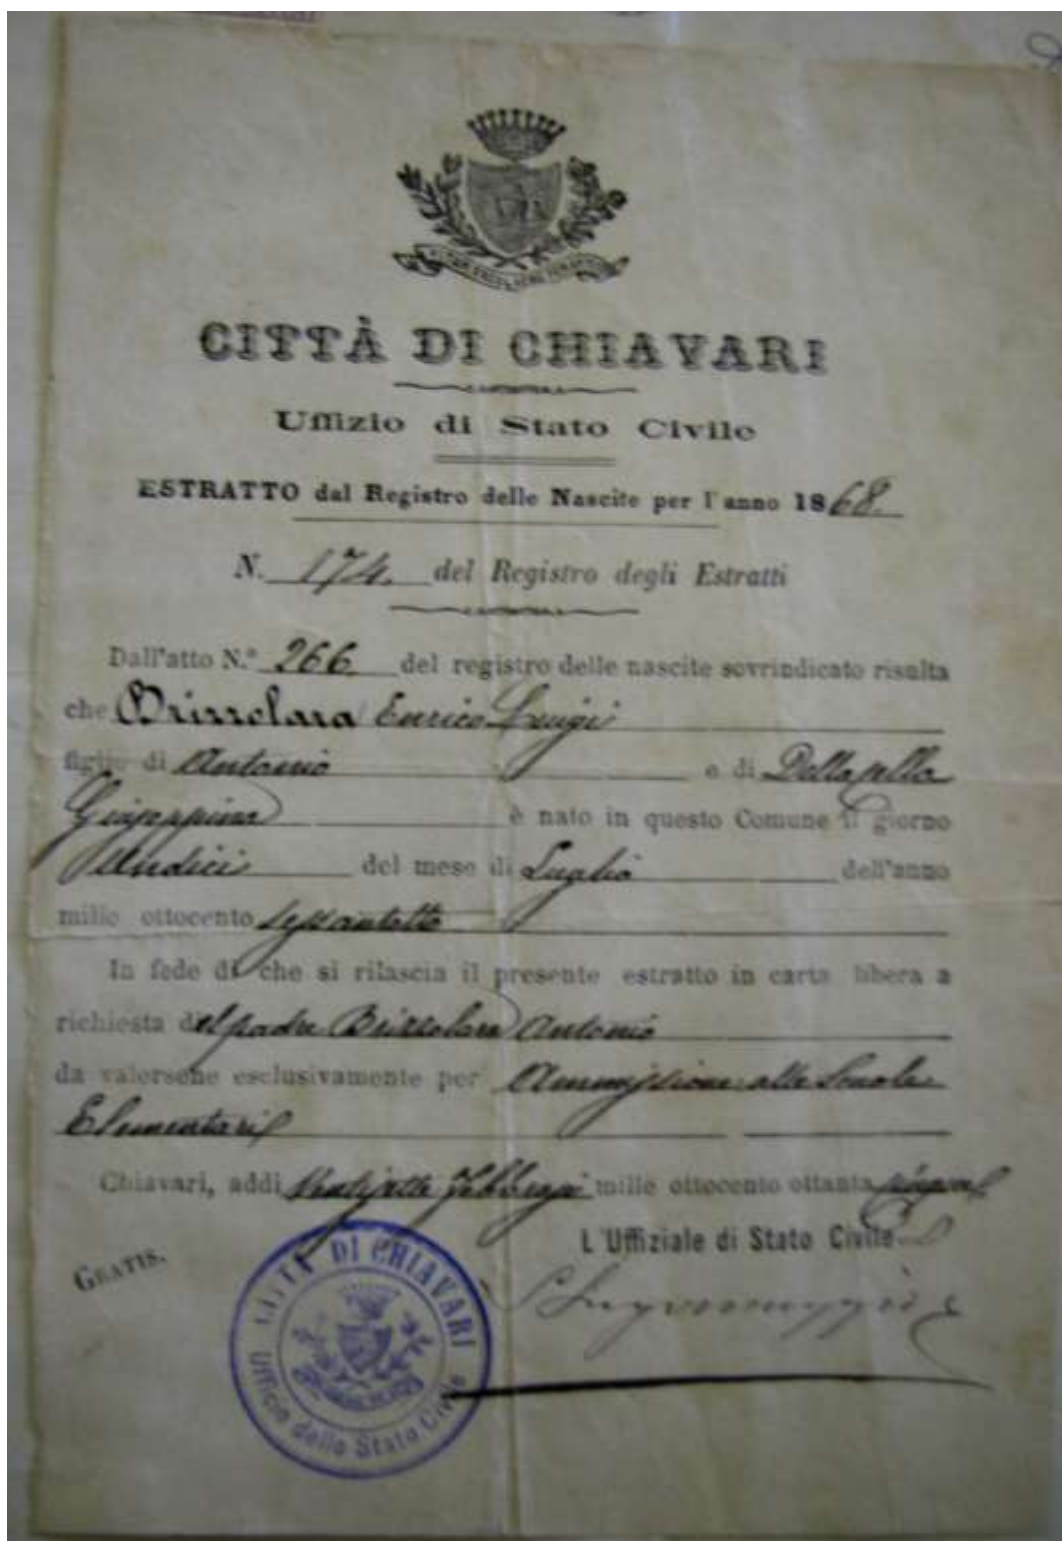 CITTÀ DI CHIAVARI
Uffizio di Stato Civile
ESTRATTO dal Registro delle Nascite per l'anno 1868.
N. 174. del Registro degli Estratti
Dall'atto N.° 266. del registro delle nascite sovrindicato risulta
che Brizzolara Enrico Luigi
figlio di Antonio e di Dellacella
Giuseppina è nato in questo Comune il giorno
Undici del mese di Luglio dell'anno
mille ottocento sessantotto
In fede di che si rilascia il presente estratto in carta libera a
richiesta del padre Brizzolara Antonio
da valersene esclusivamente per Ammissione alle Scuole
Elementari
Chiavari, addì Ventisette Febbraio mille ottocento ottanta
L'Uffiziale di Stato Civile
GRATIS.
CITTÀ DI CHIAVARI
Ufficio dello Stato Civile